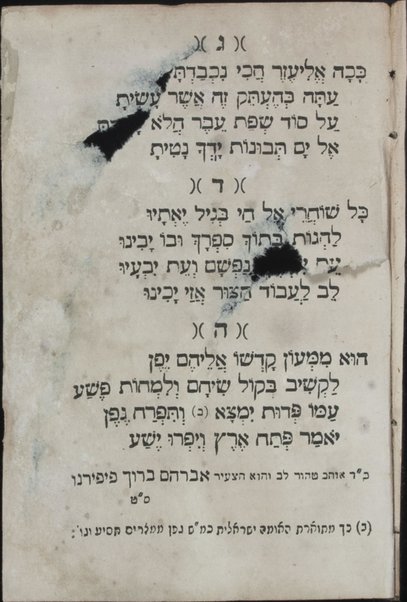 )( ג )(
כָּכָה אֱלִיעֶזֶר הֲכִי נִכְבַדְתָּ
עַתָּה בְּהֶעְתֵּק זֶה אֲשֶׁר עָשִׂיתָ
עַל סוֹד שְׂפַת עֵבֶר הֲלֹא
אֶל יָם תְּבוּנוֹת יָדְךָ נָטִיתָ
)( ד )(
כָּל שׁוֹחֲרֵי אֶל חַי בְּגִיל יֶאְתָיוּ
לַהְגוֹת בְּתוֹךְ סִפְרָךְ וּבוֹ יָבִינוּ
עֵת נַפְשָׁם וְעֵת יִבְעָיוּ
לֵב לַעֲבוֹד הַצּוּר אֲזַי יָכִינוּ
)( ה )(
הוּא מִמְּעוֹן קָדְשׁוֹ אֲלֵיהֶם יִפֶן
לַקְשִׁיב בְּקוֹל שִׂיחָם וְלִמְחוֹת פֶּשַׁע
עַמּוֹ פְּדוּת יִמְצָא (ב) וְתִפְרַח גֶּפֶן
יֹאמַר פְּתַח אֶרֶץ וְיִפְרוּ יֶשַׁע
כ"ד אוהב טהור לב והוא הצעיר אברהם ברוך פיפירנו
ס"ט
(ב) כך מתוארת האומה ישראלית כמ"ש גפן ממצרים תסיע וגו':